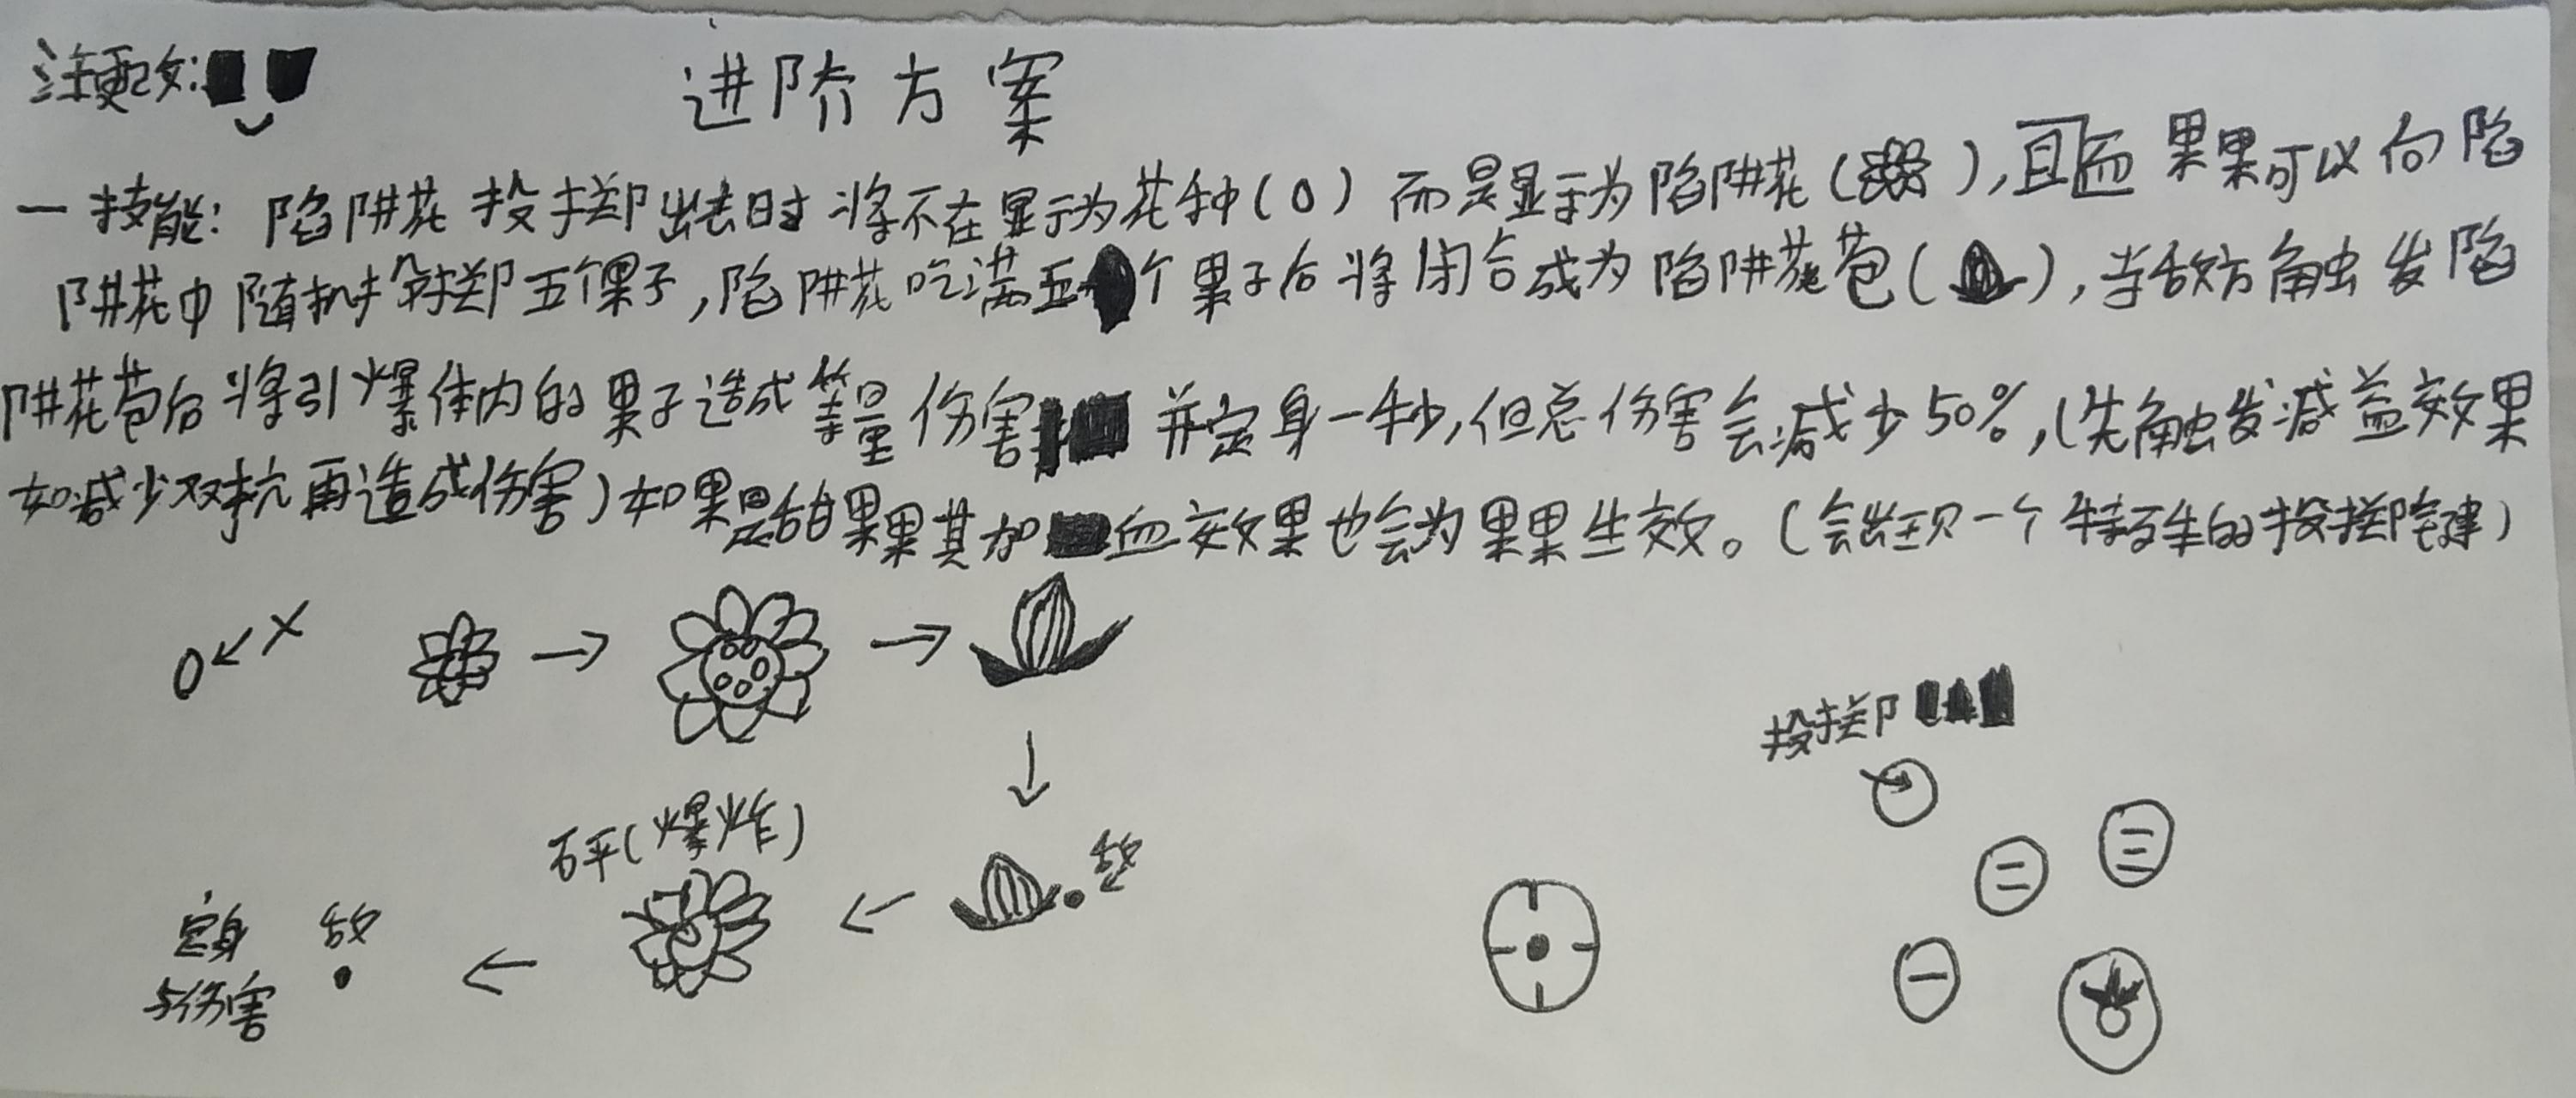 注更改:
进阶方案
一技能: 陷阱花投掷出去时将不在显示为花种(0)而是显示为陷阱花( ),且而果果可以向陷
阱花中随机投掷五个果子,陷阱花吃满五个果子后将闭合成为陷阱花苞( ),当敌方触发陷
阱花苞后将引爆体内的果子造成等量伤害并定身一秒,但总伤害会减少50%,(先触发减益效果
如减少双抗再造成伤害)如果是甜果果其加血效果也会为果果生效。(会出现一个特殊的投掷键)
投掷
砰(爆炸)
敌
定身 敌
与伤害
三
二
一